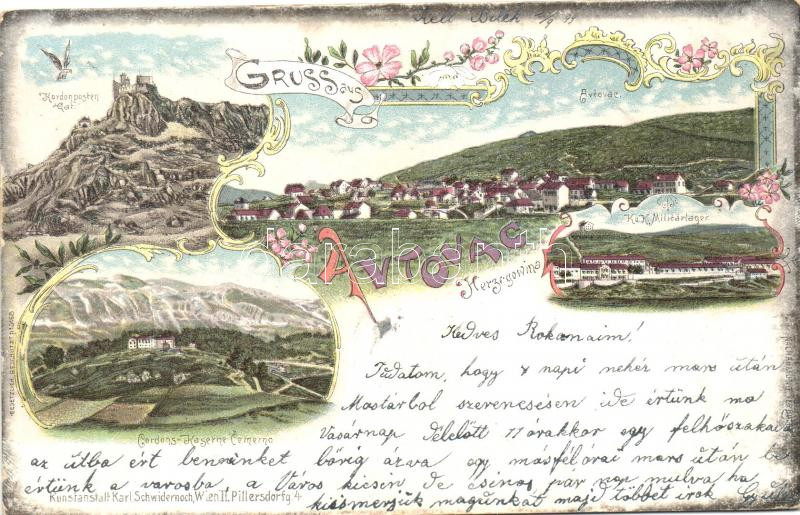 Kelt Bilek
GRUSS aus
Avtovac.
Kordonposten
Gat.
K.u.K. Militärlager.
AVTOVAC
Herzegowina
darabanth.com
Kedves Rokonaim!
Tudatom, hogy 4 napi nehéz mars után
Mostárból szerencsésen ide értünk ma
Vasárnap Délelőtt 11 órakkor egy felhőszakadás
az útba ért bennünket bőrig ázva egy másfél órai mars után be
értünk a városba a Város kicsin de csinos par nap mulva ha
kiismerjük magunkat majd többet irok
Cordons-Kaserne Čemerno
Kunstanstalt Karl Schwidernoch, Wien II. Pillersdorfg. 4